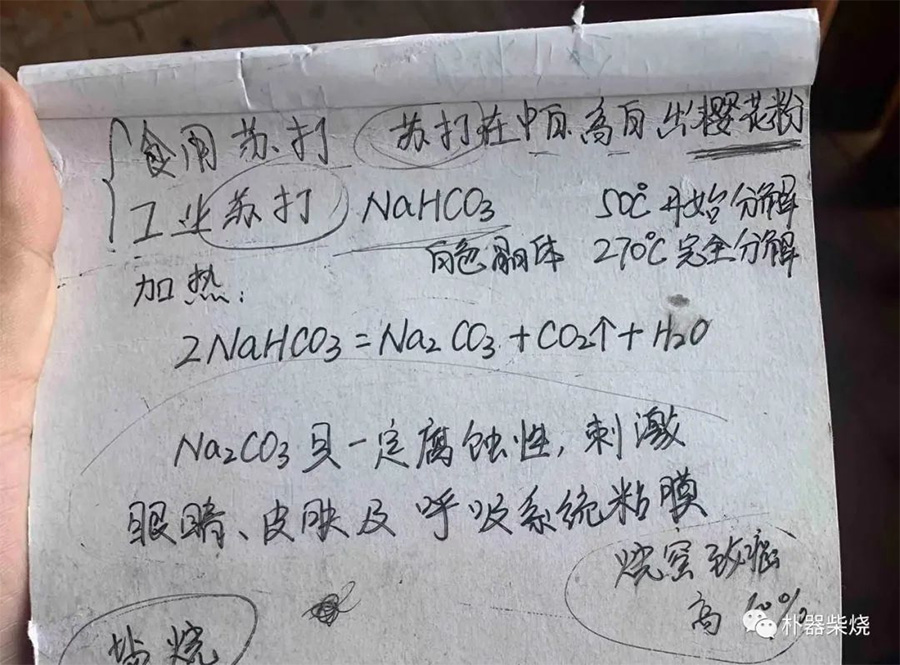 食用苏打 苏打在中白高白出樱花粉
工业苏打 NaHCO3 50℃开始分解
白色晶体 270℃完全分解
加热:
2NaHCO3=Na2CO3+CO2↑+H2O
Na2CO3具一定腐蚀性,刺激
眼睛、皮肤及呼吸系统粘膜
烧窑致癌
高 %
盐烧
朴器柴烧